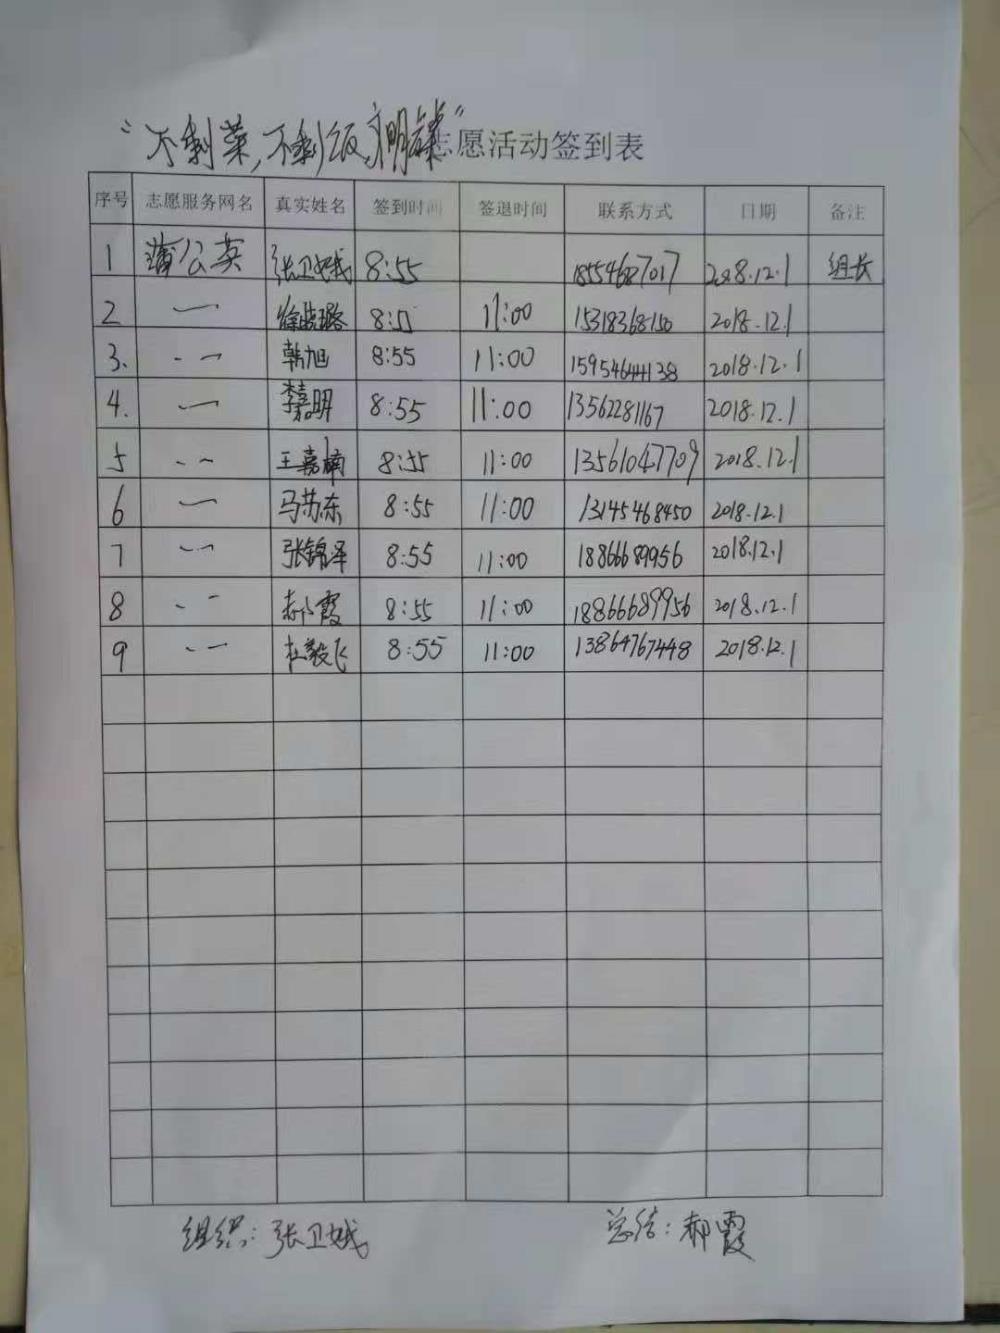 “不剩菜,不剩饭,文明餐桌”志愿活动签到表
序号 志愿服务网名 真实姓名 签到时间 签退时间 联系方式 日期 备注
1 蒲公英 张卫娥 8:55 18554687017 2018.12.1 组长
2 8:55 11:00 15318368150 2018.12.1
3. 韩旭 8:55 11:00 15954644138 2018.12.1
4. 李嘉明 8:55 11:00 13562281167 2018.12.1
5 王嘉楠 8:55 11:00 13561047709 2018.12.1
6 马苏东 8:55 11:00 13145468450 2018.12.1
7 张锦泽 8:55 11:00 18866689956 2018.12.1
8 郝霞 8:55 11:00 18866689956 2018.12.1
9 杜毅飞 8:55 11:00 13864767448 2018.12.1
组织:张卫娥 总结:郝霞